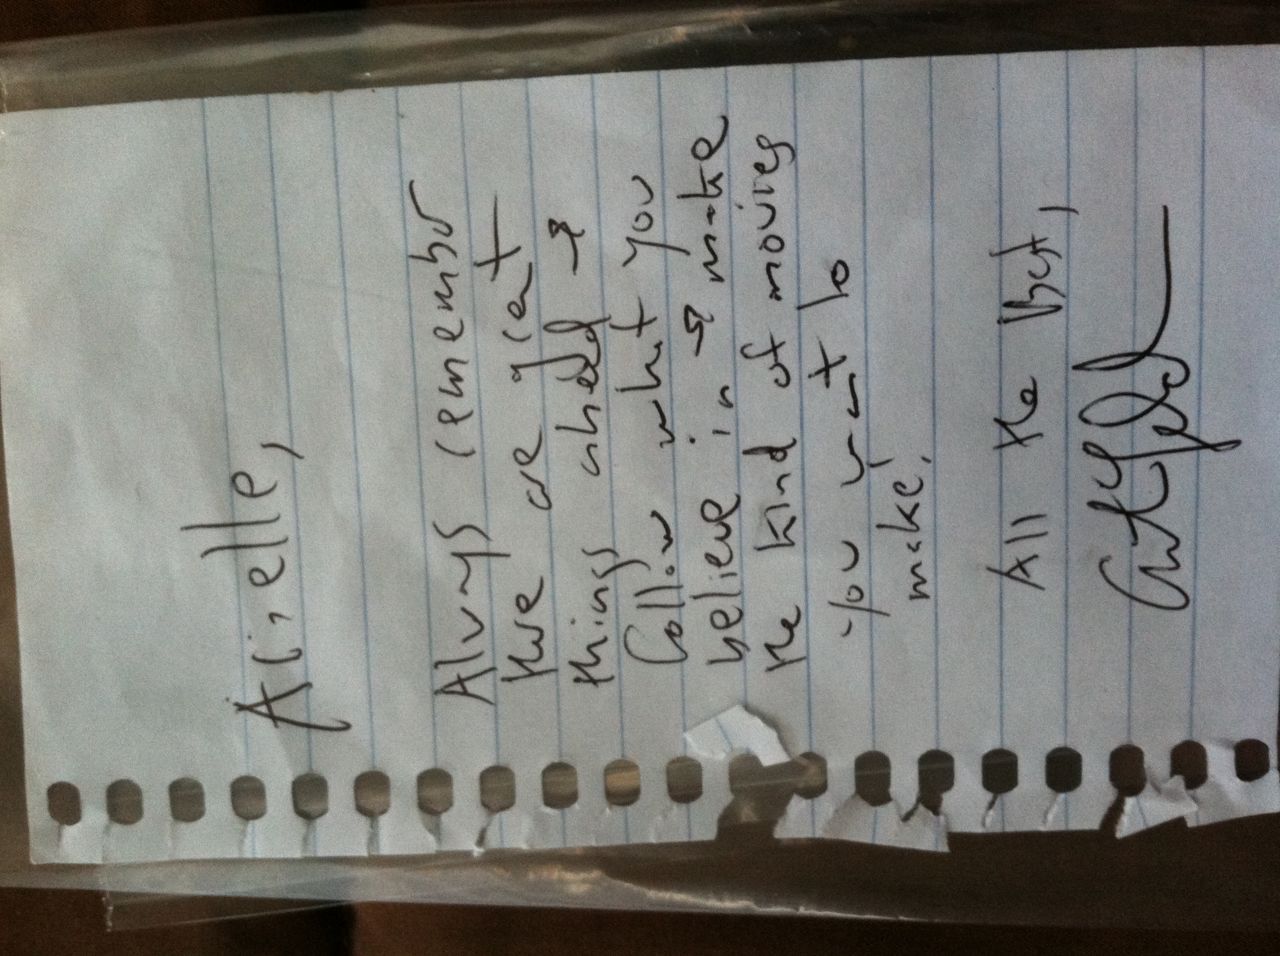 Arielle,
Always remember
there are great
things ahead &
follow what you
believe in & make
the kind of movies
you want to
make!
All the Best,